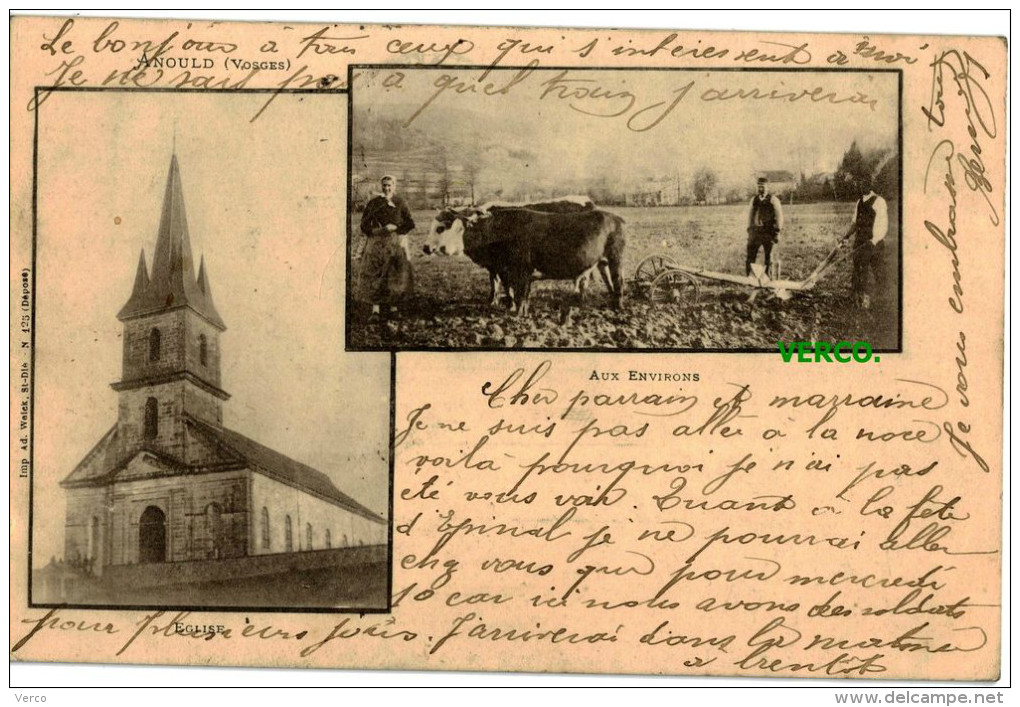 Le bonjour à tous ceux qui s'intéressent à moi
Je ne sais pas à quel train j'arriverai
ANOULD (VOSGES)
Imp Ad. Weick, St-Dié - N 125 (Déposé)
VERCO.
AUX ENVIRONS
Cher parrain et marraine
Je ne suis pas allée à la noce
voilà pourquoi je n'ai pas
été vous voir. Quant à la fête
d'Epinal je ne pourrai aller
chez vous que pour mercredi
10 car ici nous avons des soldats
pour plusieurs jours. J'arriverai dans la matinée
à bientôt
EGLISE
Je vous embrasse tous
Verco
http://www.delcampe.net